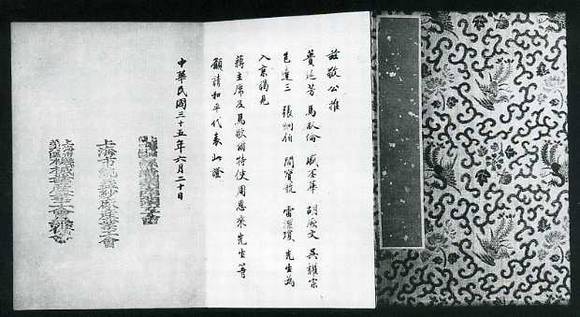 茲敬公推
黃延芳 馬叙倫 盛丕華 胡厥文 吳耀宗
包達三 張絅伯 閻寶航 雷潔瓊 先生為
入京謁見
蔣主席及馬歇爾特使周恩來先生等
籲請和平代表此證
中華民國三十五年六月二十日
上海市產業工會